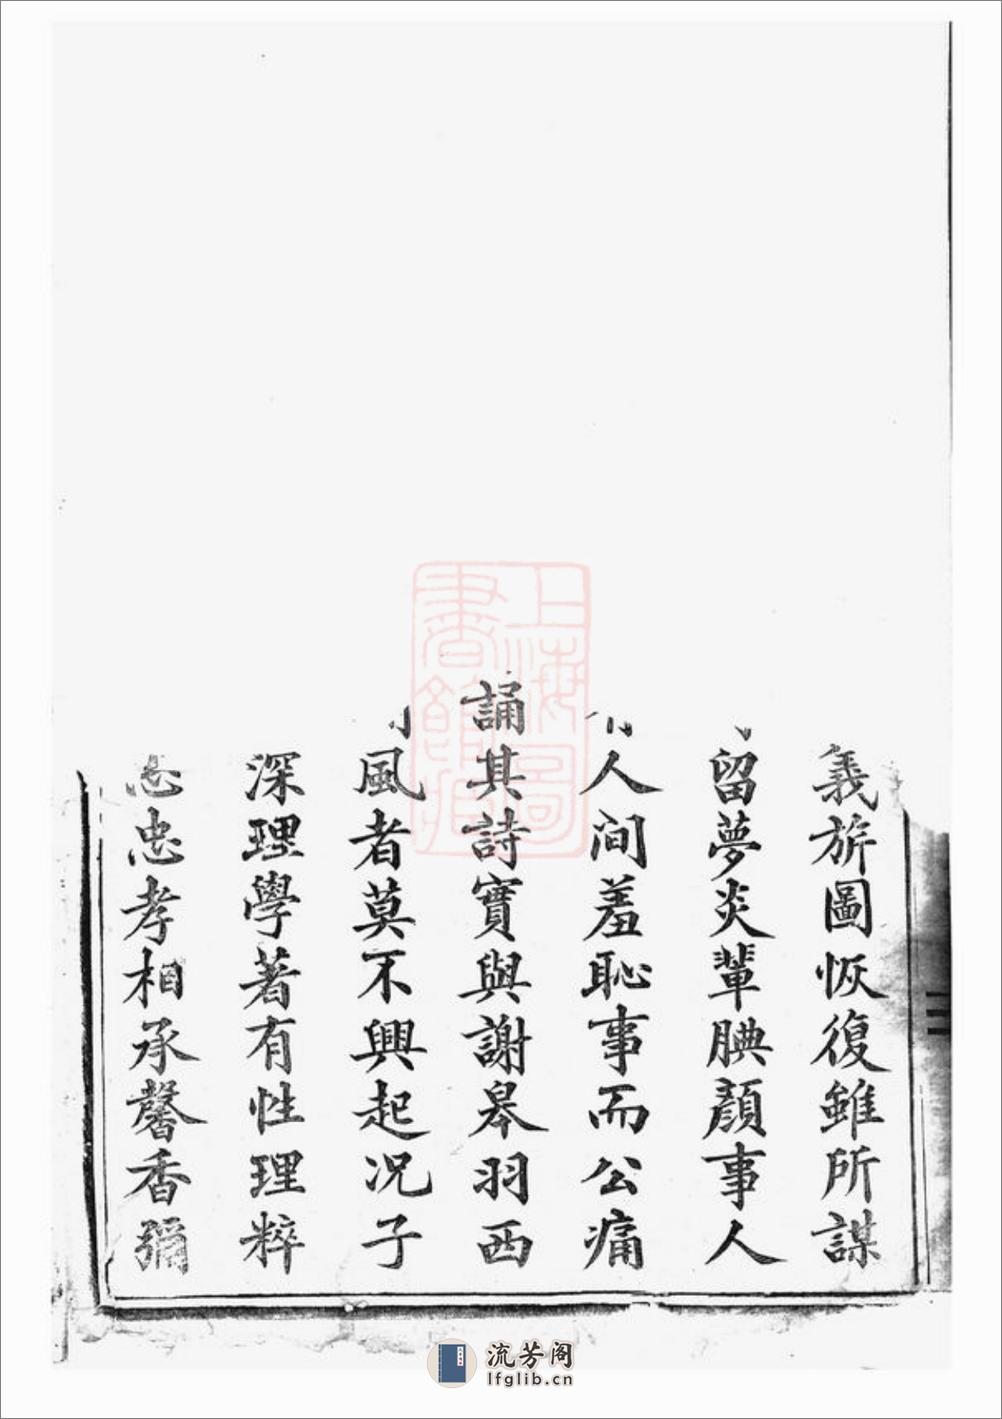 義旂圖恢復雖所謀
留夢炎輩腆顏事人
人间羞恥事而公痛
誦其詩實與謝皋羽西
風者莫不興起况子
深理學著有性理粹
忠孝相承馨香彌
上海圖書館藏
流芳阁
lfglib.cn